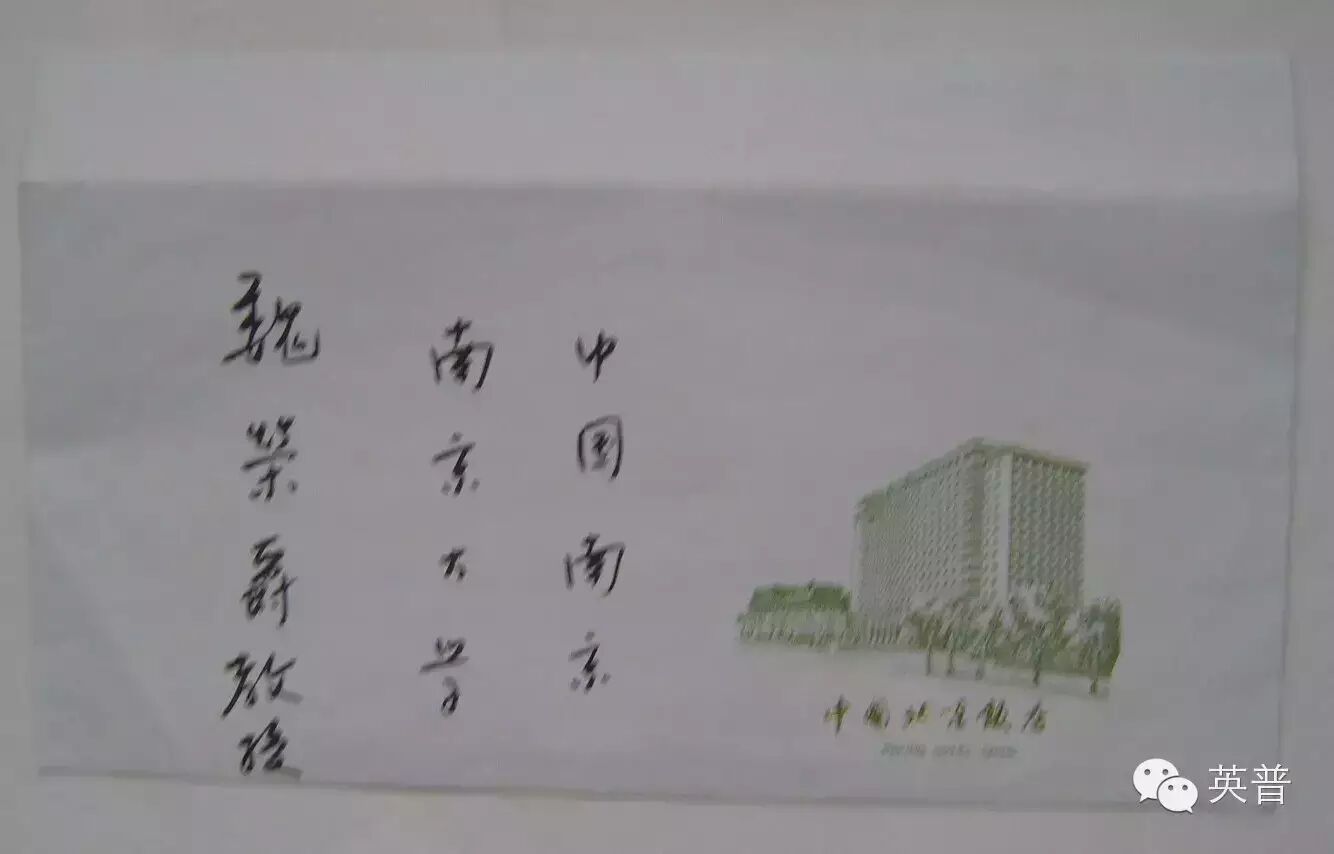 中国南京
南京大学
魏荣爵教授
中国北京饭店
英普